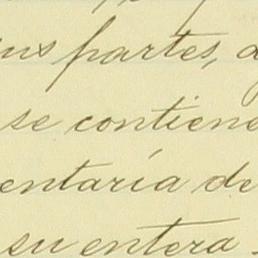 sus partes,
se contiene
entaría de
su entera